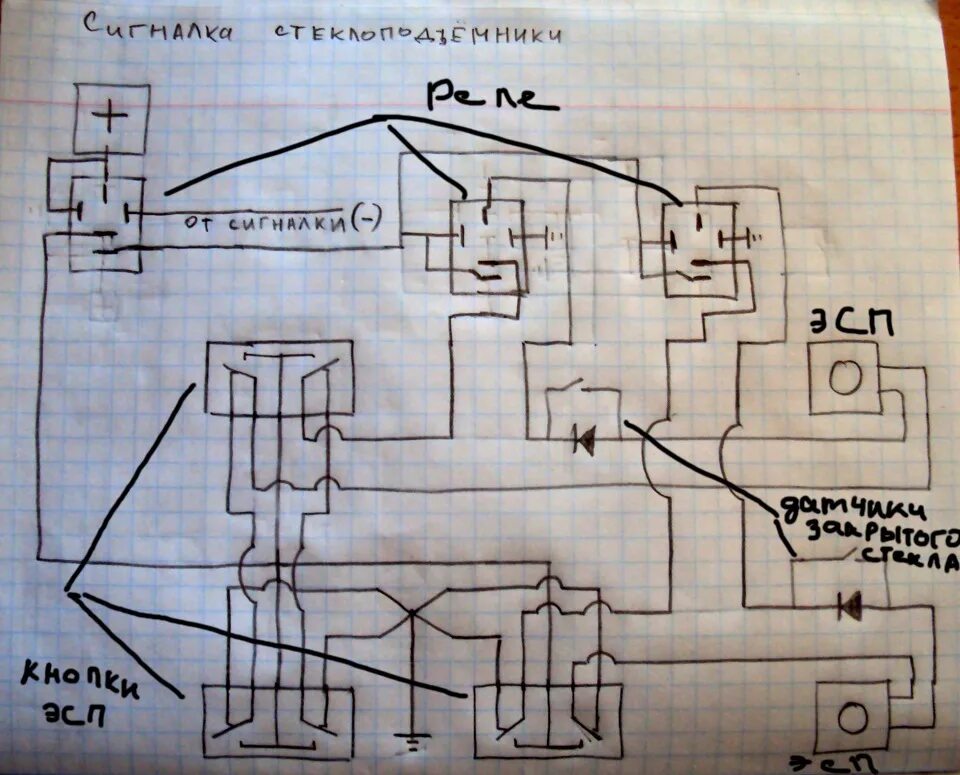 Сигналка стеклоподъёмники
Реле
+
от сигналки (-)
ЭСП
датчики
закрытого
стекла
кнопки
ЭСП
ЭСП